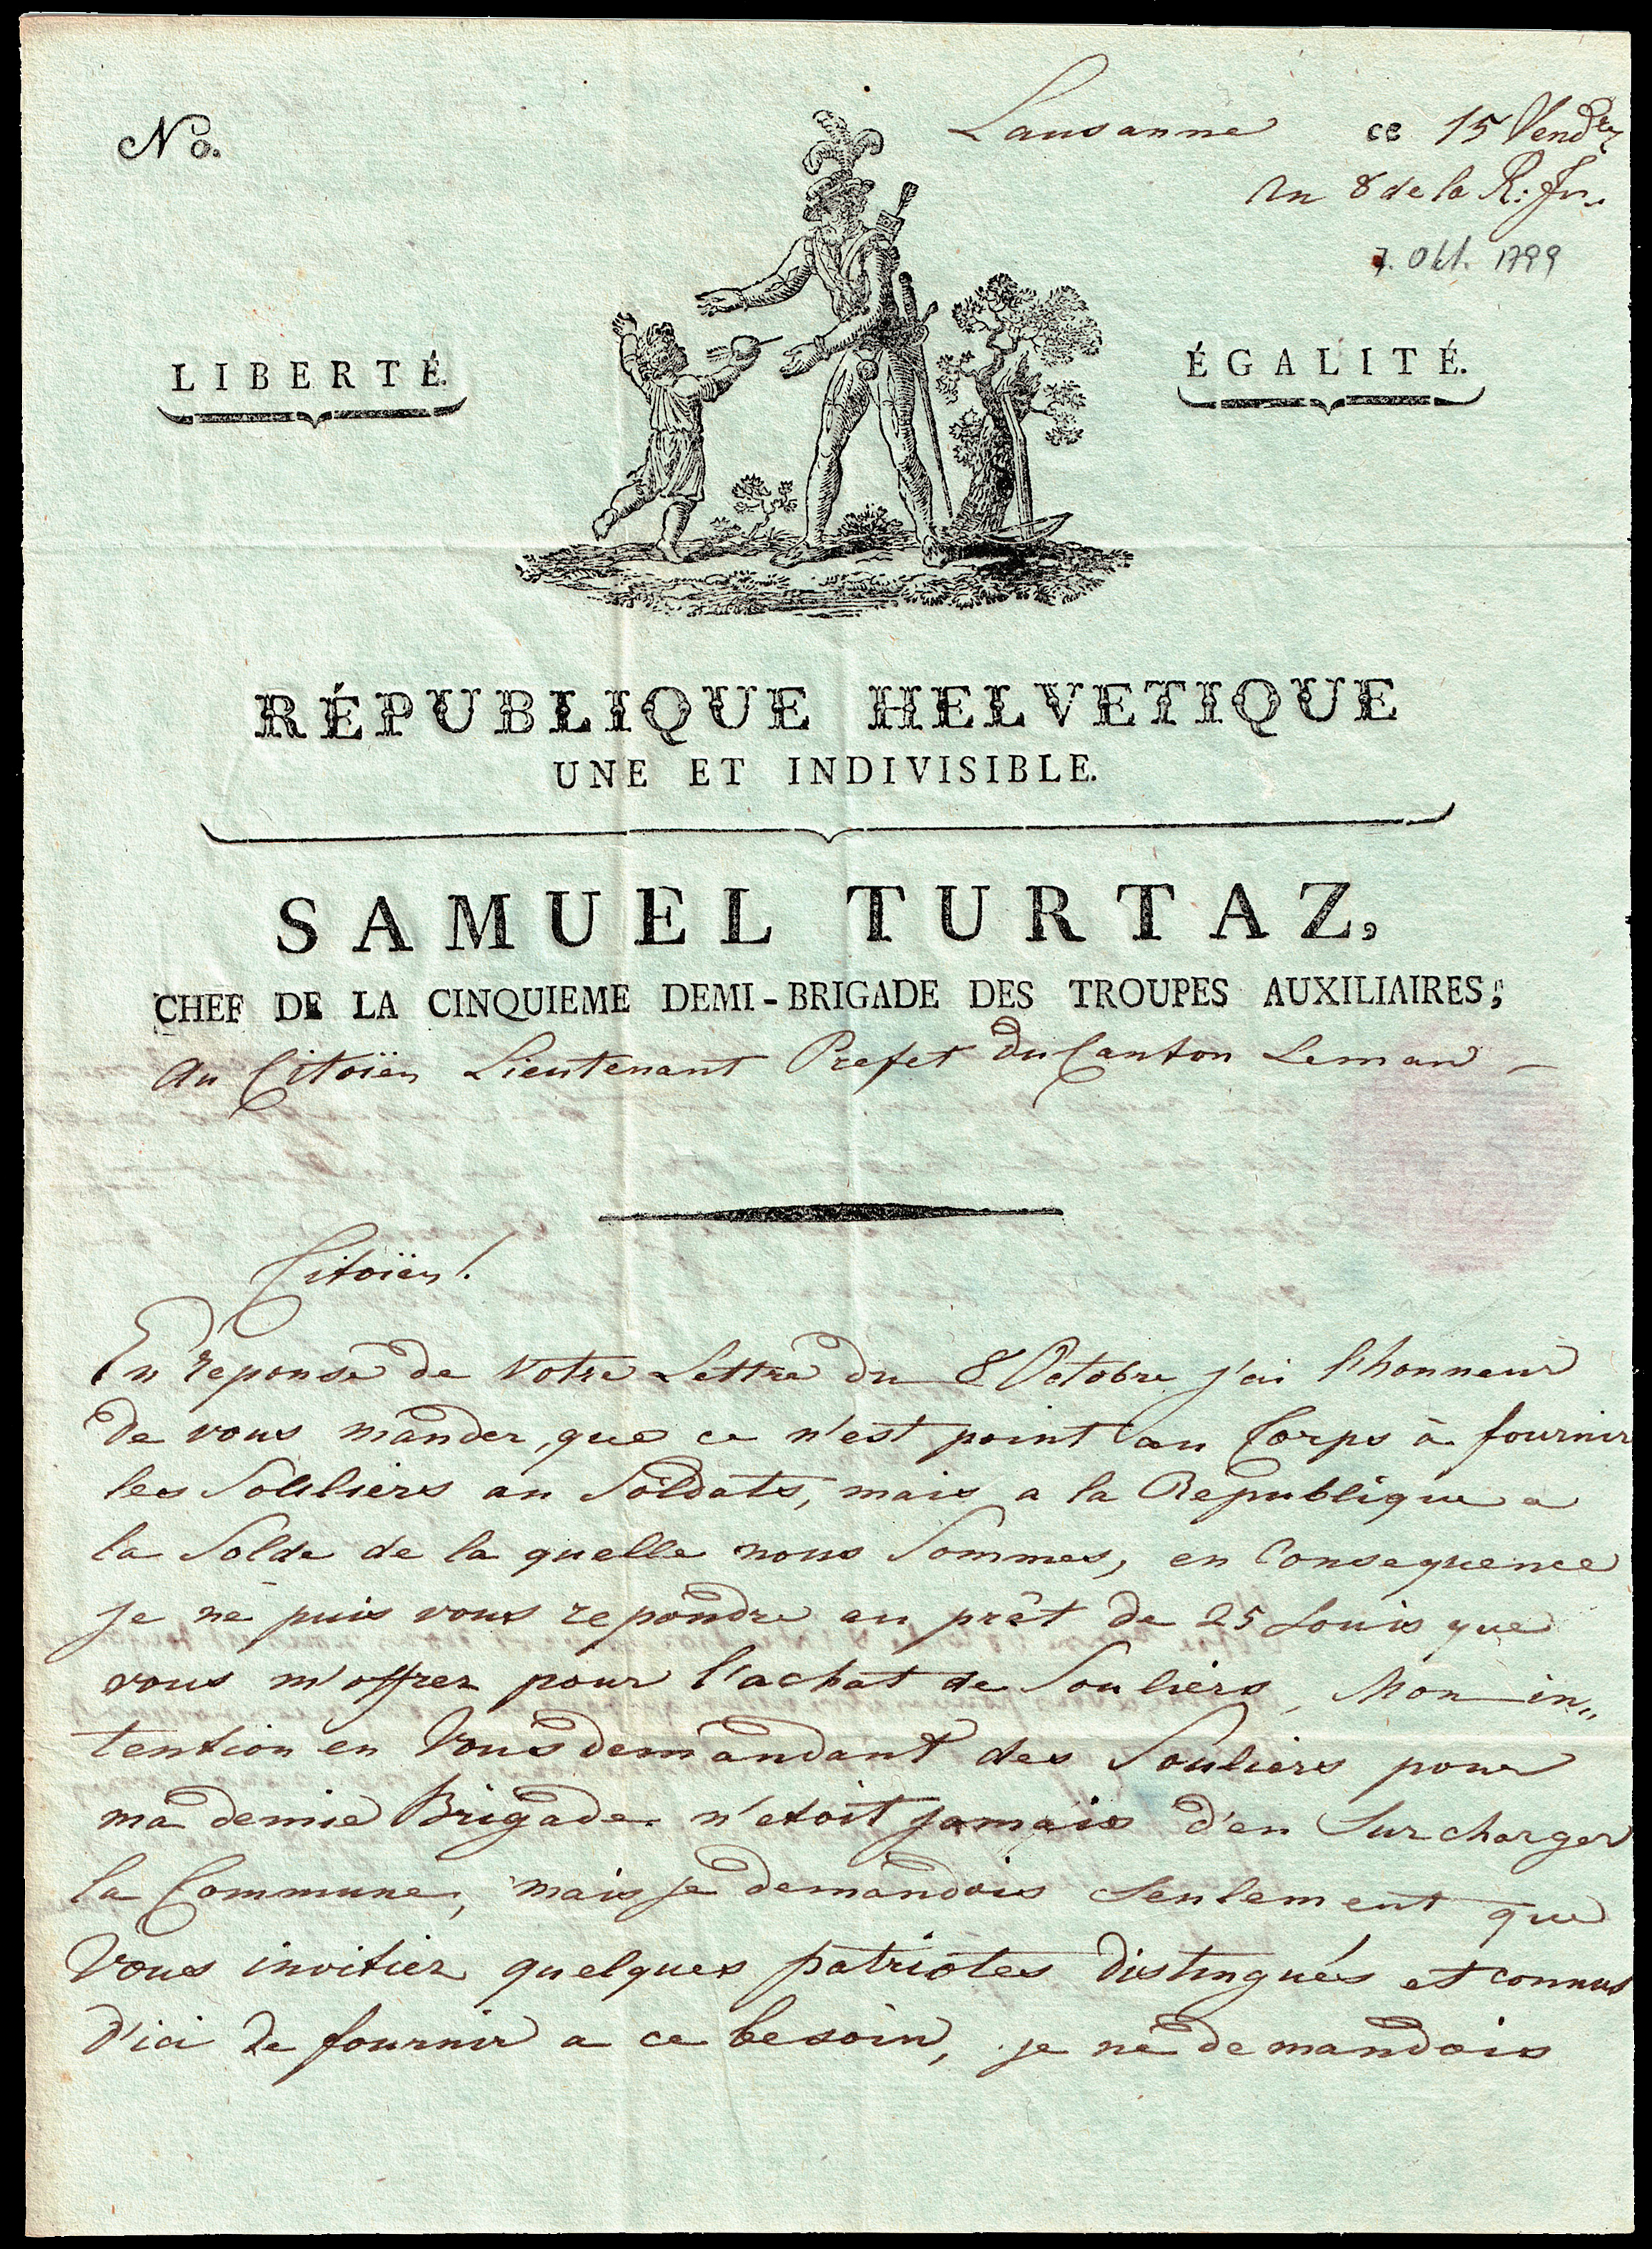 No.
Lausanne ce 15 Vend.re
An 8 de la R. fr.
7. Okt. 1799
LIBERTÉ.
ÉGALITÉ.
RÉPUBLIQUE HELVETIQUE
UNE ET INDIVISIBLE.
SAMUEL TURTAZ,
CHEF DE LA CINQUIEME DEMI-BRIGADE DES TROUPES AUXILIAIRES;
Au Citoïen Lieutenant Prefet du Canton Leman —
Citoïen!
En reponse de votre Lettre du 8 Octobre j'ai l'honneur
de vous mander, que ce n'est point au Corps à fournir
les Souliers au Soldats, mais a la Republique a
la Solde de la quelle nous Sommes, en Consequence
je ne puis vous repondre au prêt de 25 Louis que
vous m'offrez pour l'achat de Souliers, Mon in„
tention en Vous demandant des Souliers pour
ma demie Brigade n'etoit jamais d'en Surcharger
la Commune, mais je demandois Seulement que
Vous invitiez quelques patriotes distingués et connus
d'ici de fournir a ce besoin, je ne demandois